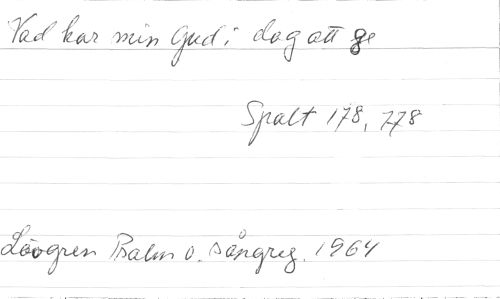 Vad har min Gud i dag att ge
Spalt 178, 778
Lövgren Psalm o. sångreg. 1964